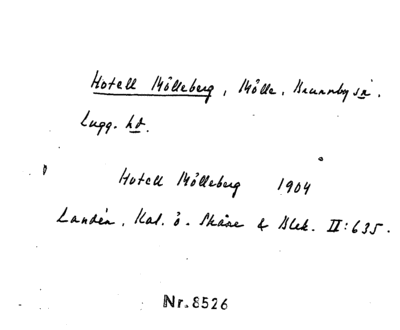 Hotell Mölleberg, Mölle, Brunnby sn.
Lugg. hd.
Hotell Mölleberg 1904
Landén, Kat. ö. Skåne & Blek. II:635.
Nr.8526